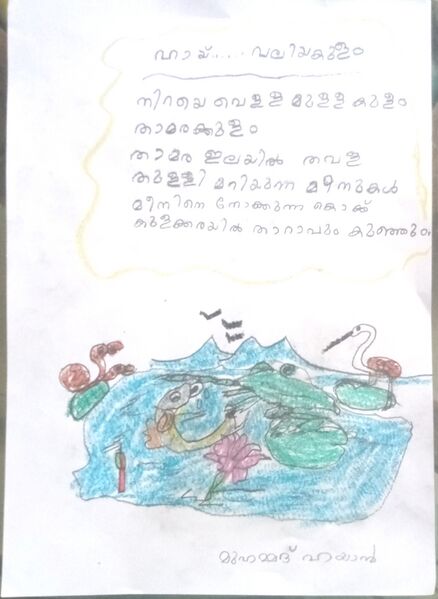 ഹായ്..... വലിയകുളം
നിറയെ വെള്ള മുള്ള കുളം
താമരക്കുളം
താമര ഇലയിൽ തവള
തുള്ളി മറിയുന്ന മീനുകൾ
മീനിനെ നോക്കുന്ന കൊക്ക്
കുളക്കരയിൽ താറാവും കുഞ്ഞും
മുഹമ്മദ് ഹയാൻ